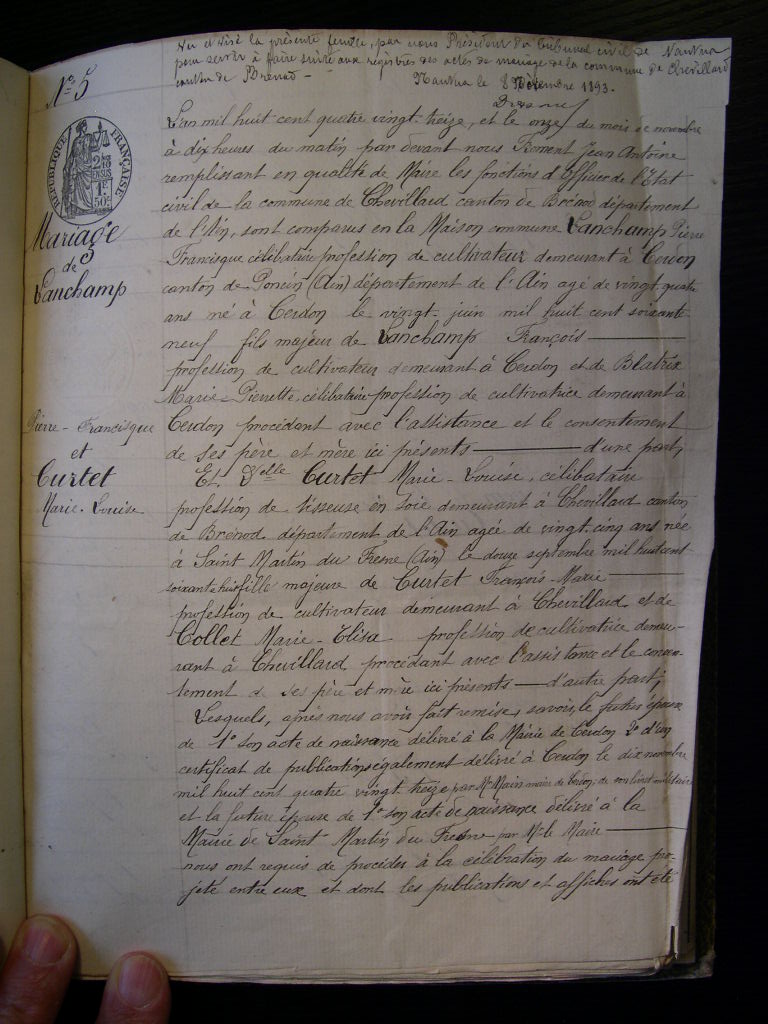 Vu et visé la présente feuille, par nous Président du Tribunal civil de Nantua
pour servir à faire suite aux registres des actes de mariage de la commune de Chevillard
canton de Brénod — Nantua le 8 Décembre 1893.
N° 5
RÉPUBLIQUE FRANÇAISE
Mariage
de
Lanchamp
Pierre-Francisque
et
Curtet
Marie-Louise
L'an mil huit cent quatre vingt-treize, et le onze du mois de novembre
à dix heures du matin par devant nous Froment Jean Antoine
remplissant en qualité de Maire les fonctions d'Officier de l'Etat
civil de la commune de Chevillard canton de Brénod département
de l'Ain, sont comparus en la Maison commune Lanchamp Pierre
Francisque célibataire profession de cultivateur demeurant à Cerdon
canton de Poncin (Ain) département de l'Ain agé de vingt-quatre
ans né à Cerdon le vingt-juin mil huit cent soixante
neuf fils majeur de Lanchamp François
profession de cultivateur demeurant à Cerdon et de Blatrix
Marie-Pierrette, célibataire profession de cultivatrice demeurant à
Cerdon procédant avec l'assistance et le consentement
de ses père et mère ici présents — d'une part,
Et Delle Curtet Marie-Louise, célibataire
profession de tisseuse en soie demeurant à Chevillard canton
de Brénod département de l'Ain agée de vingt-cinq ans née
à Saint Martin du Fresne (Ain) le douze septembre mil huit cent
soixante huit fille majeure de Curtet François-Marie
profession de cultivateur demeurant à Chevillard et de
Collet Marie-Elisa profession de cultivatrice demeu-
rant à Chevillard procédant avec l'assistance et le consen-
tement de ses père et mère ici présents — d'autre part,
Lesquels, après nous avoir fait remise, savoir, le futur époux
de 1° son acte de naissance délivré à la Mairie de Cerdon 2° d'un
certificat de publications également délivré à Cerdon le dix novembre
mil huit cent quatre vingt treize par Mr Main maire de Cerdon, de son livret militaire
et la future épouse de 1° son acte de naissance délivré à la
Mairie de Saint-Martin du Fresne par Mr le Maire
nous ont requis de procéder à la célébration du mariage pro-
jeté entre eux et dont les publications et affiches ont été